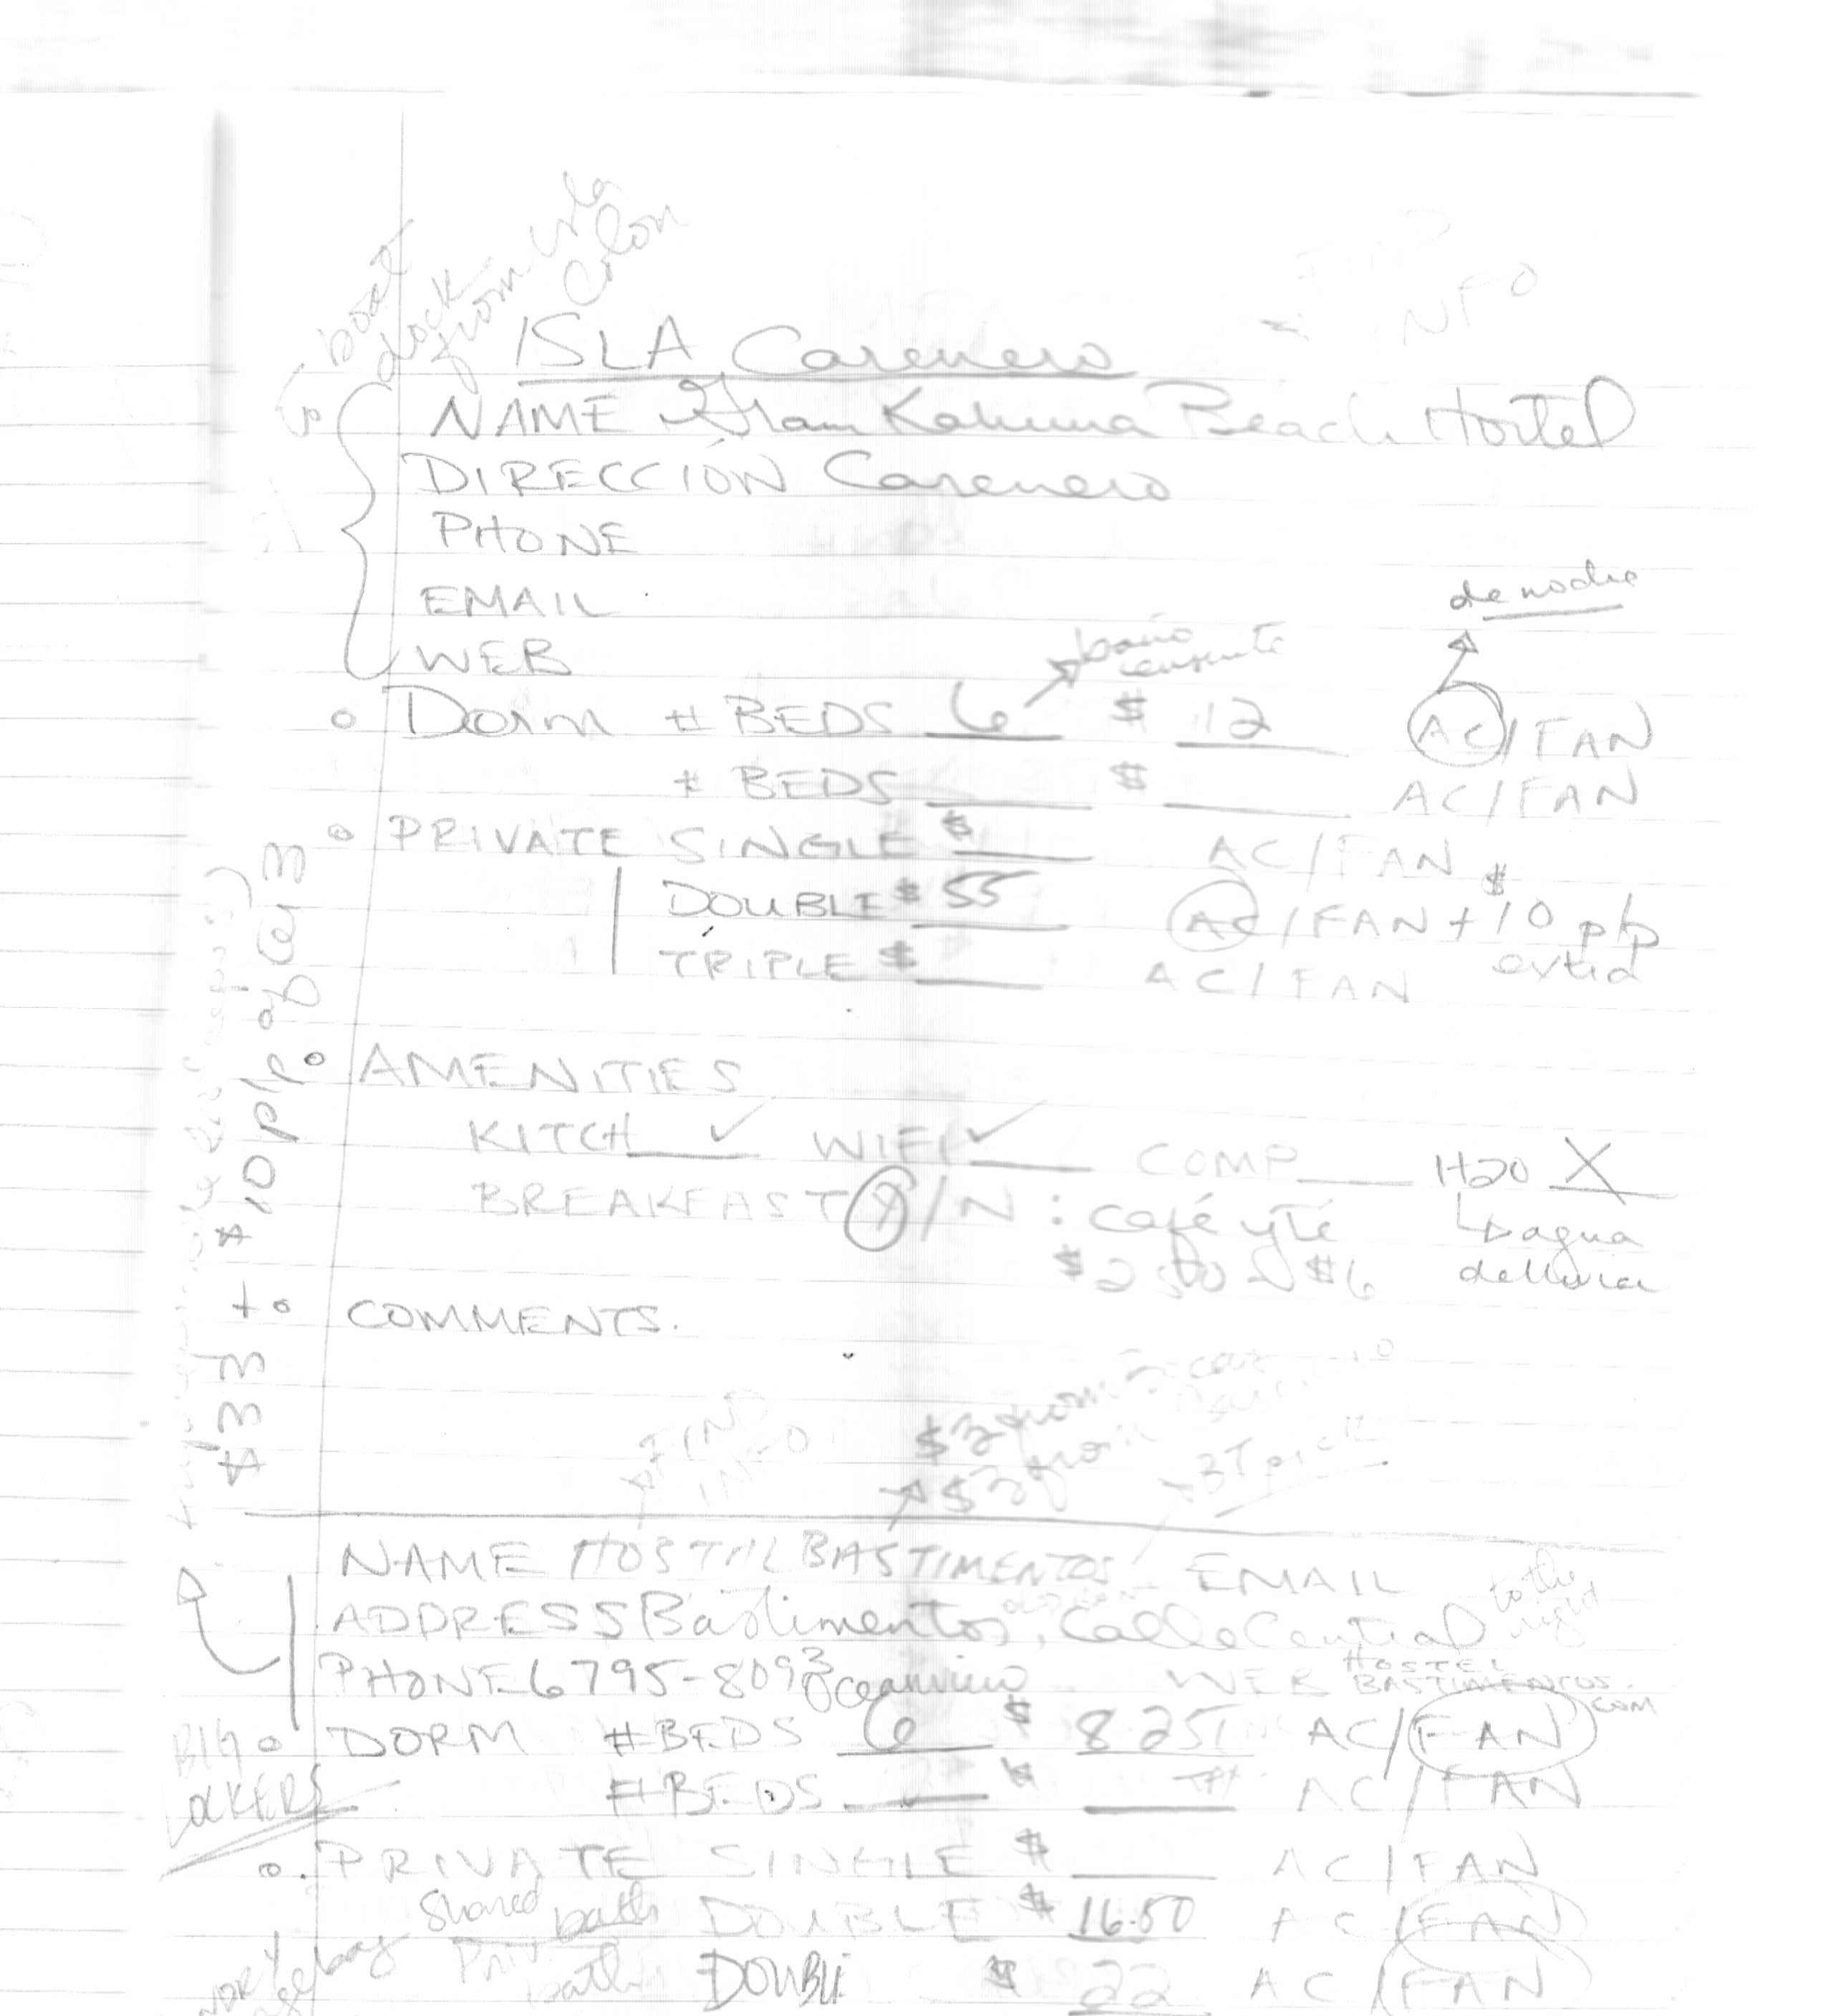 boat
dock
from Isla
Colon
INFO
ISLA Carenero
NAME Gran Kahuna Beach Hostel
DIRECCIÓN Carenero
PHONE
EMAIL
WEB
de noche
baño
Dorm # BEDS 6 $ 12 AC/FAN
# BEDS ___ $ ___ AC/FAN
PRIVATE SINGLE $ ___ AC/FAN
DOUBLE $ 55 AC/FAN + $10 p/p
extra
TRIPLE $ ___ AC/FAN
AMENITIES
KITCH ✓ WIFI ✓ COMP ___ H20 X
BREAKFAST Y/N : café y té
agua
de lluvia
$6
COMMENTS.
$10 p/p
FIND
INFO
$3 from
$3
NAME HOSTEL BASTIMENTOS EMAIL
ADDRESS Bastimentos, Calle Central to the
right
PHONE 6795-8093 WEB HOSTEL
BASTIMENTOS.
COM
Oceanview
DORM #BEDS 6 $ 8.25 AC/FAN
BIG
LOCKERS
#BEDS ___ $ ___ AC/FAN
PRIVATE SINGLE $ ___ AC/FAN
Shared bath DOUBLE $ 16.50 AC/FAN
Priv bath DOUBL $ 22 AC/FAN